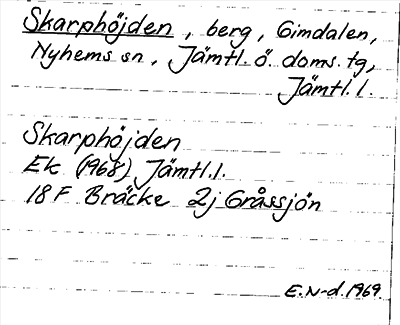 Skarphöjden, berg, Gimdalen,
Nyhems sn, Jämtl. ö. doms. tg,
Jämtl. l.
Skarphöjden
Ek (1968) Jämtl. l.
18 F Bräcke 2j Gråssjön
E. N-d. 1969.